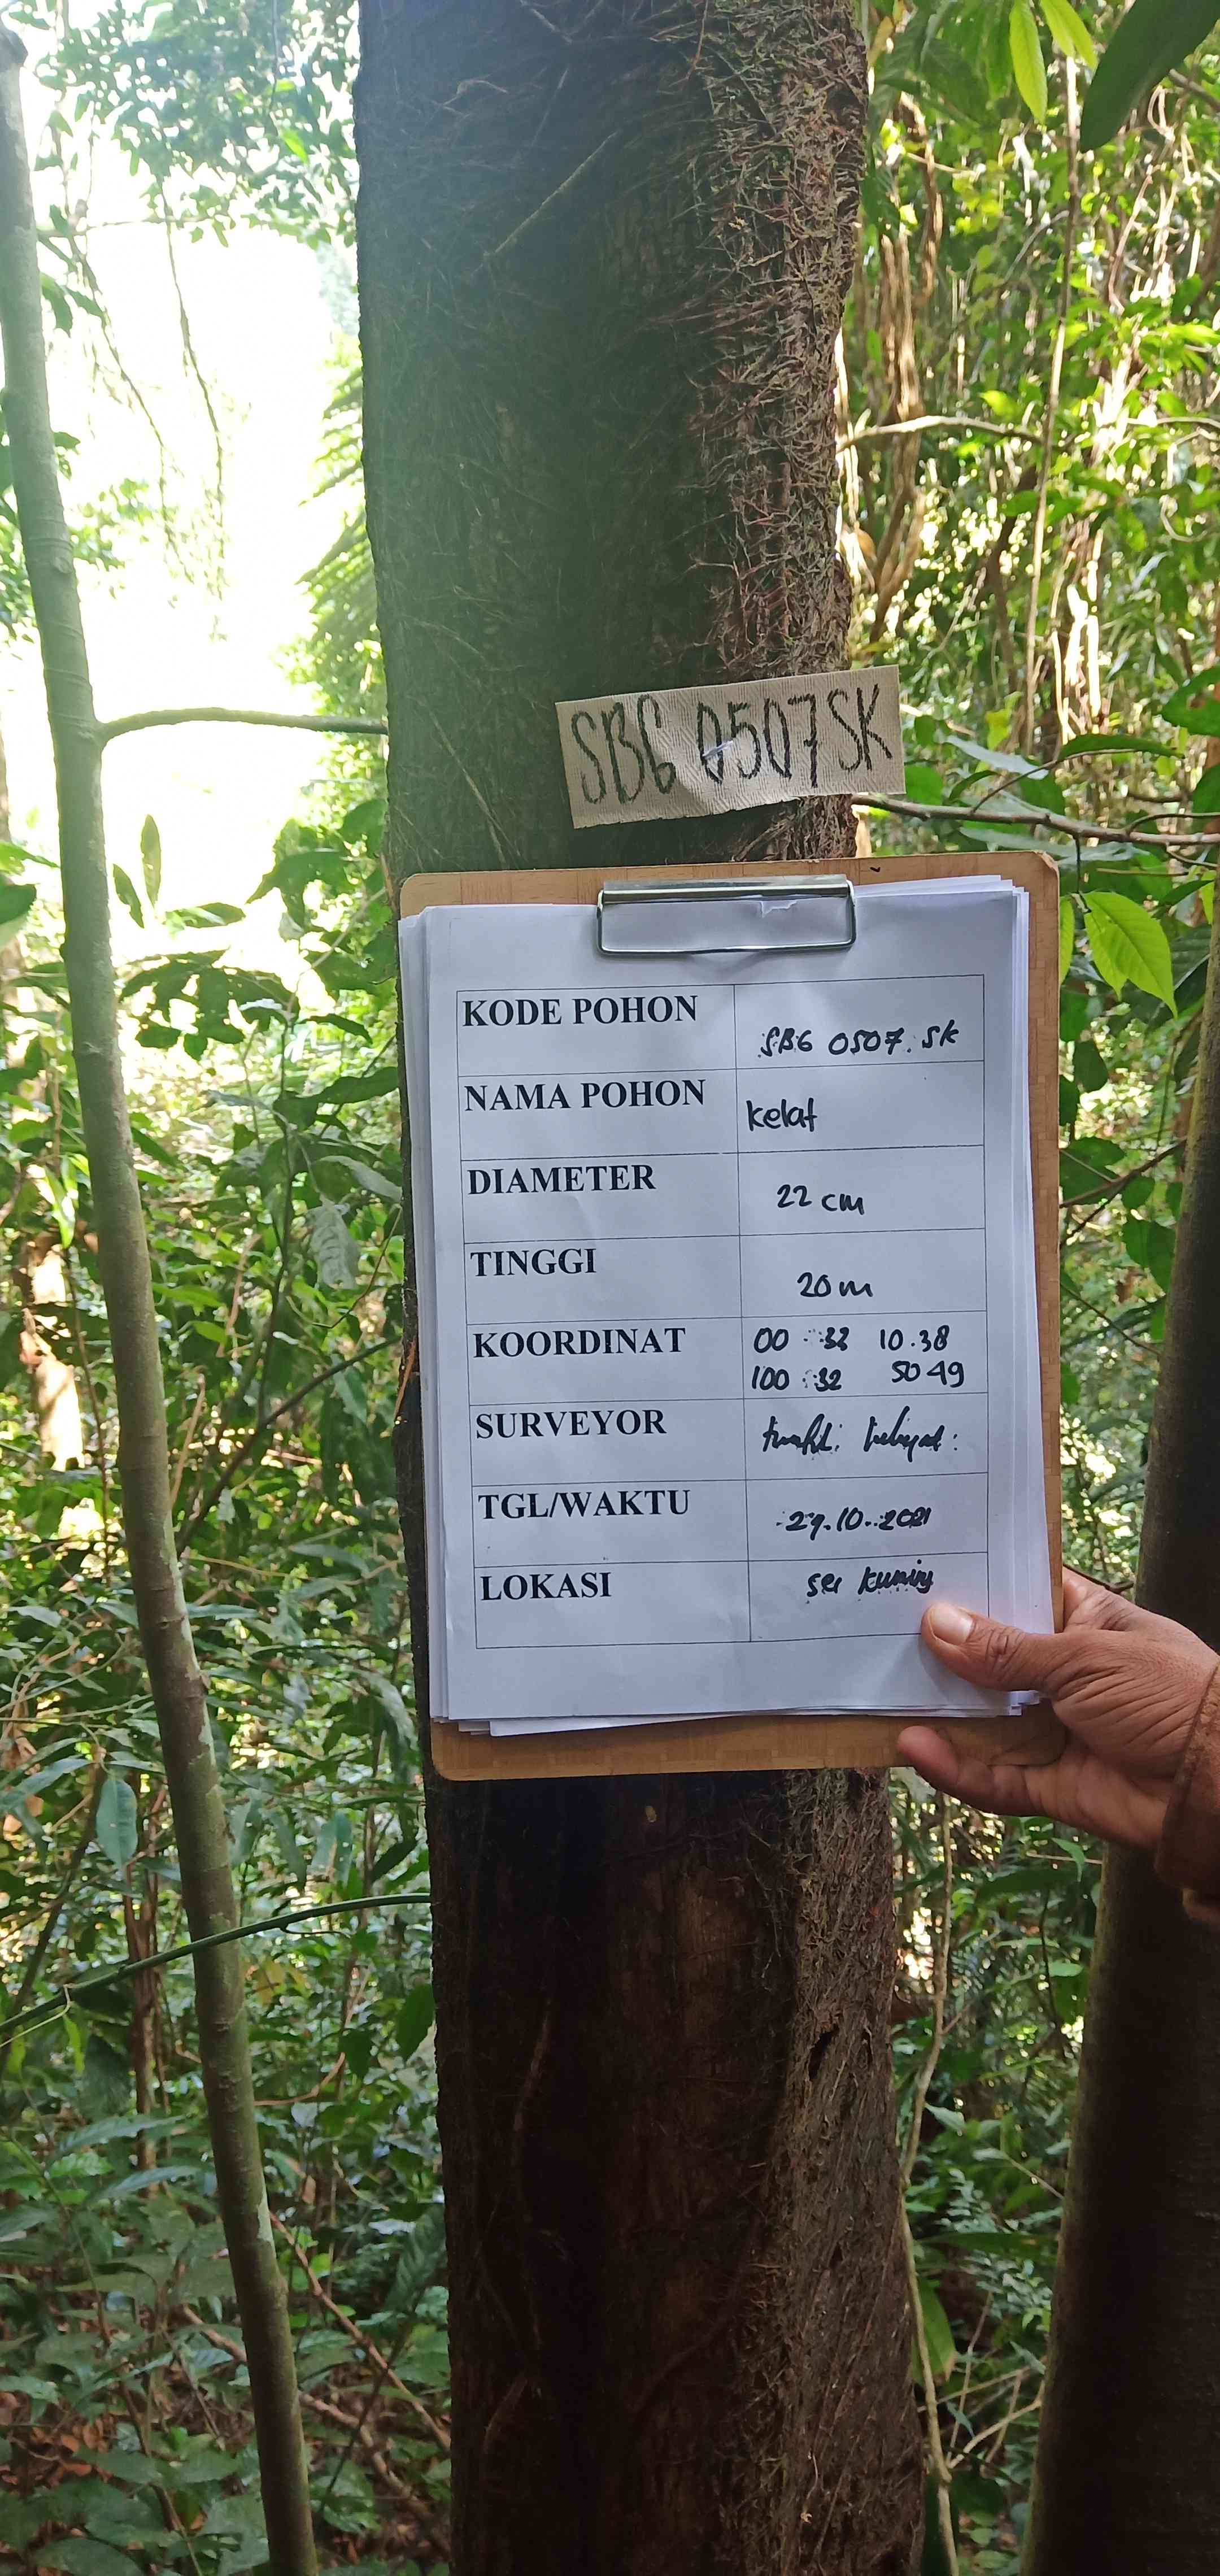 SBG 0507 SK
KODE POHON SBG 0507. SK
NAMA POHON Kelat
DIAMETER 22 cm
TINGGI 20 m
KOORDINAT 00 32 10.38
100 32 50 49
SURVEYOR
TGL/WAKTU 29.10.2021
LOKASI sei Kuning